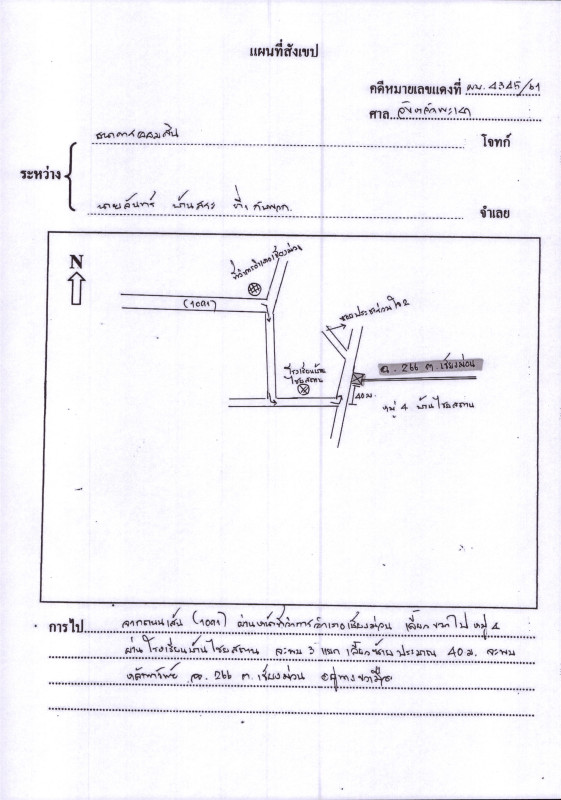 แผนที่สังเขป
คดีหมายเลขแดงที่ ผบ. 4345/61
ศาล
ธนาคารออมสิน โจทก์
ระหว่าง
นายจันทร์ ที่ 1 กับพวก จำเลย
N
ที่ว่าการอำเภอเชียงม่วน
(1091)
ซอยประชาร่วมใจ 2
โรงเรียนบ้าน
ไชยสถาน
ฉ. 266 ต. เชียงม่วน
40 ม.
หมู่ 4 บ้านไชยสถาน
การไป จากถนนเส้น (1091) ผ่านที่ว่าการอำเภอเชียงม่วน เลี้ยวขวาไป หมู่ 4
ผ่านโรงเรียนบ้านไชยสถาน จะพบ 3 แยก เลี้ยวซ้าย ประมาณ 40 ม. จะพบ
หลักทรัพย์ ฉ. 266 ต. เชียงม่วน อยู่ทางขวามือ